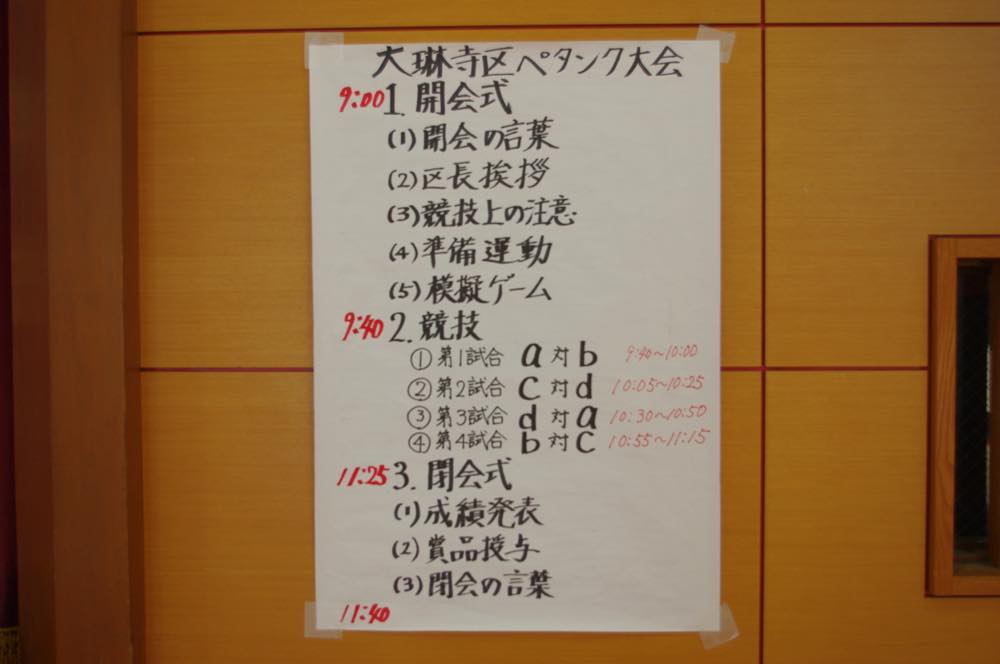 大琳寺区ペタンク大会
9:00 1. 開会式
(1) 開会の言葉
(2) 区長挨拶
(3) 競技上の注意
(4) 準備運動
(5) 模擬ゲーム
9:40 2. 競技
① 第1試合 a 対 b 9:40~10:00
② 第2試合 c 対 d 10:05~10:25
③ 第3試合 d 対 a 10:30~10:50
④ 第4試合 b 対 c 10:55~11:15
11:25 3. 閉会式
(1) 成績発表
(2) 賞品授与
(3) 閉会の言葉
11:40